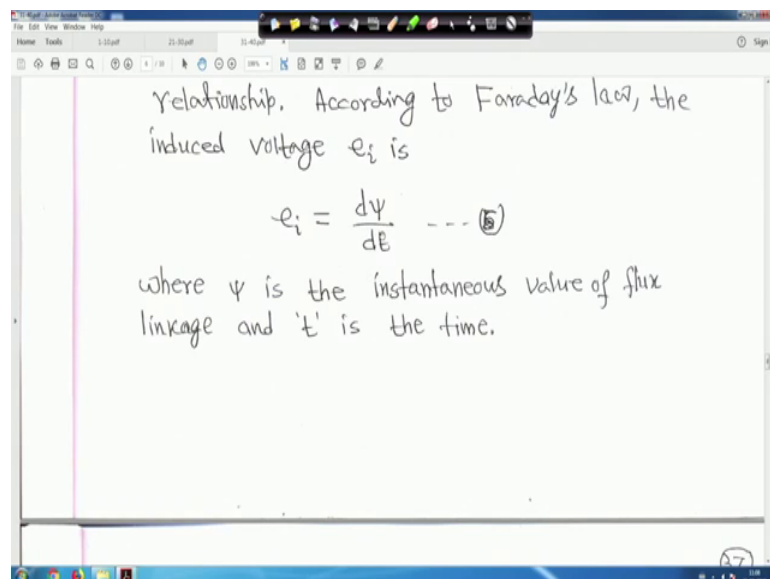 31-40.pdf - Adobe Acrobat Reader DC
File Edit View Window Help
Home Tools 1-10.pdf 21-30.pdf 31-40.pdf × Sign
relationship. According to Faraday's law, the
induced voltage ei is
ei = dψ/dt ---- (5)
where ψ is the instantaneous value of flux
linkage and 't' is the time.
37